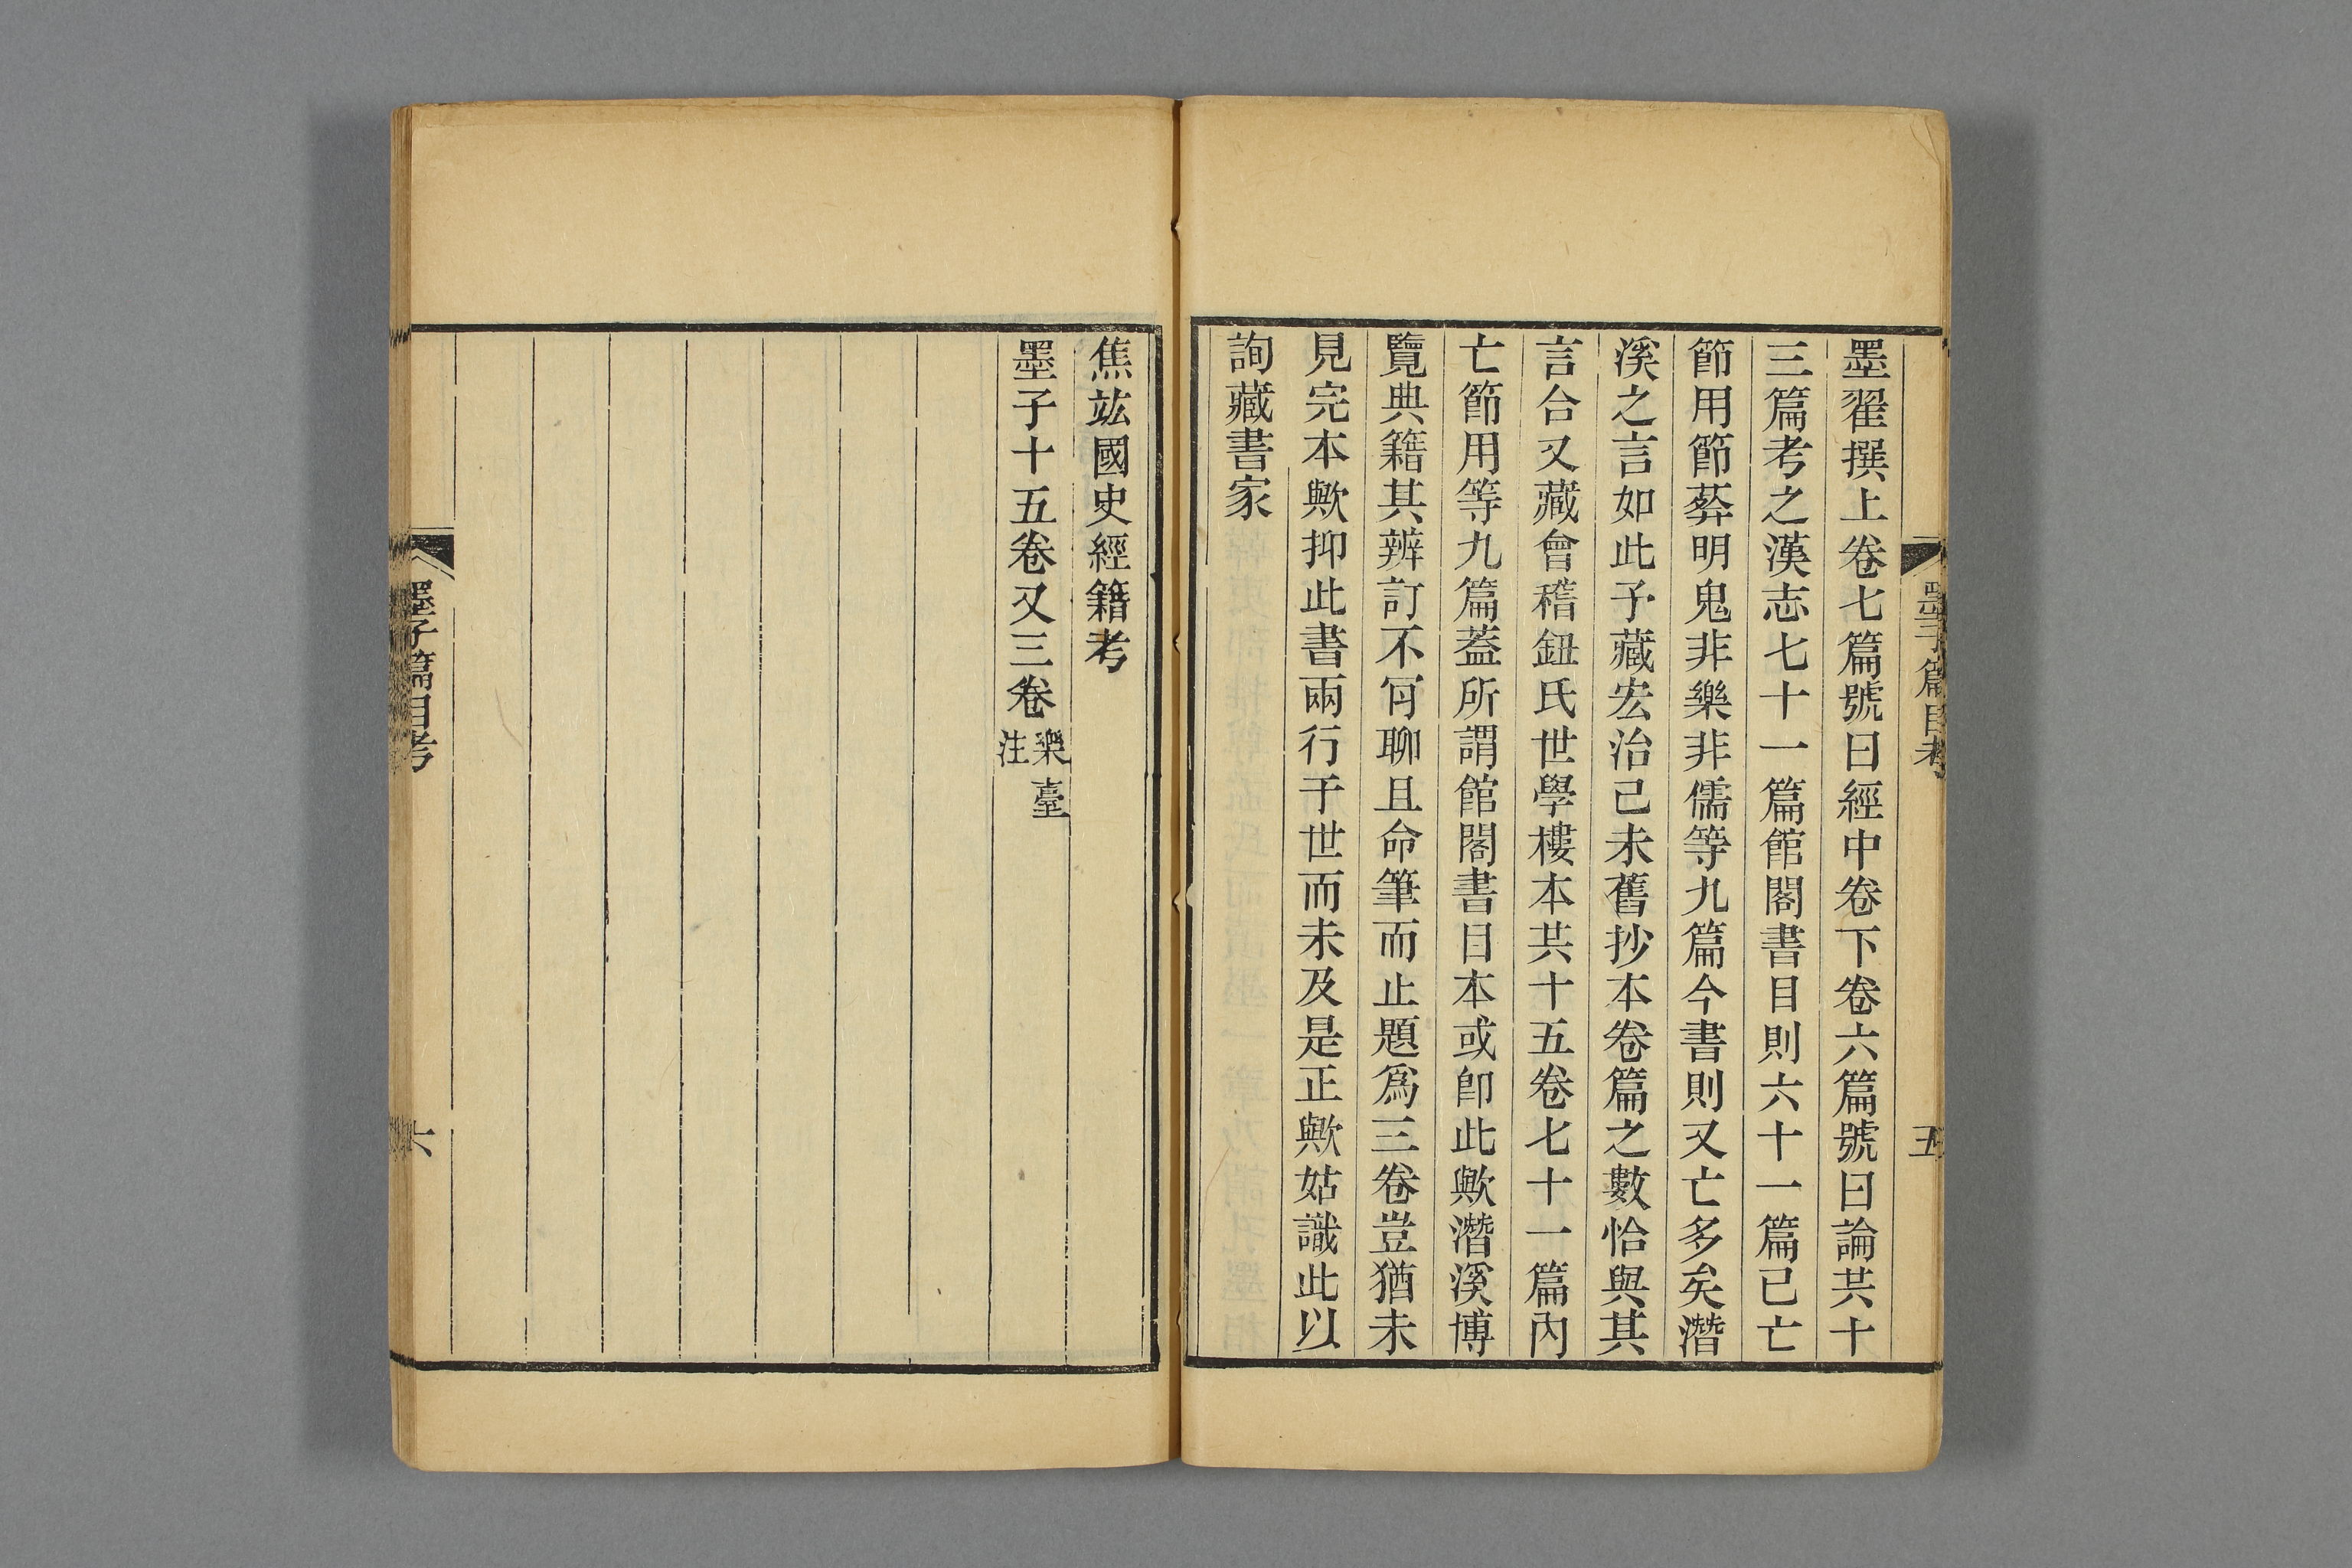 墨子篇目考 五
墨翟撰上卷七篇號曰經中卷下卷六篇號曰論共十
三篇考之漢志七十一篇館閣書目則六十一篇已亡
節用節葬明鬼非樂非儒等九篇今書則又亡多矣潛
溪之言如此予藏宏治己未舊抄本卷篇之數恰與其
言合又藏會稽鈕氏世學樓本共十五卷七十一篇內
亡節用等九篇蓋所謂館閣書目本或卽此歟潛溪博
覽典籍其辨訂不冐聊且命筆而止題爲三卷豈猶未
見完本歟抑此書兩行于世而未及是正歟姑識此以
詢藏書家
焦竑國史經籍考
墨子十五卷又三卷
樂臺
注
墨子篇目考 六